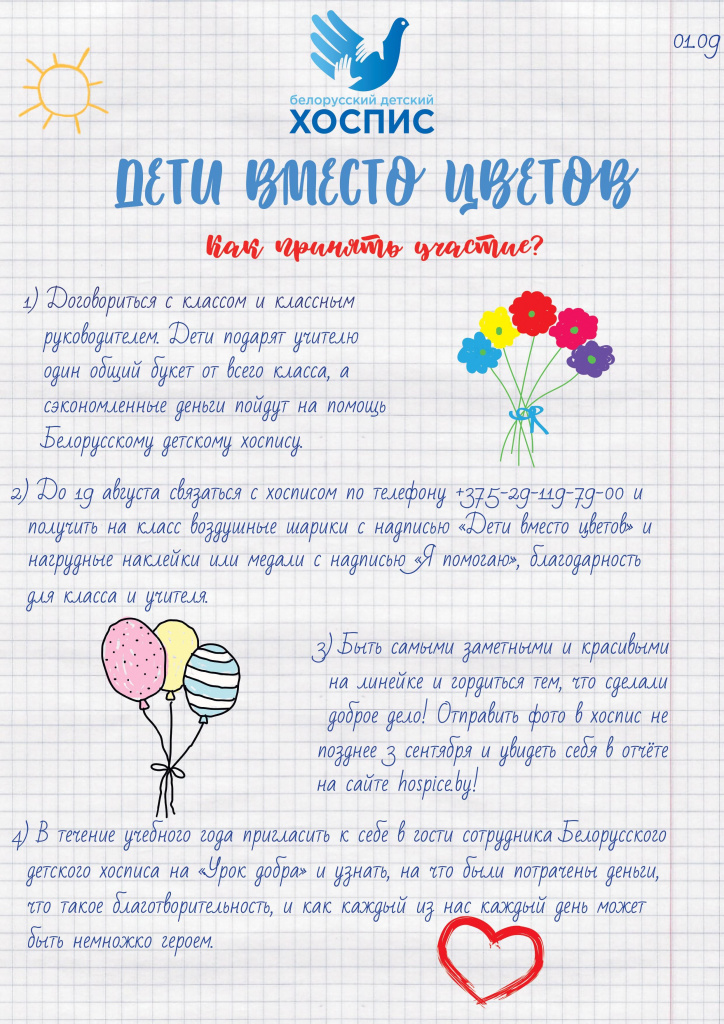 01.09
белорусский детский
ХОСПИС
ДЕТИ ВМЕСТО ЦВЕТОВ
Как принять участие?
1) Договориться с классом и классным
руководителем. Дети подарят учителю
один общий букет от всего класса, а
сэкономленные деньги пойдут на помощь
Белорусскому детскому хоспису.
2) До 19 августа связаться с хосписом по телефону +375-29-119-79-00 и
получить на класс воздушные шарики с надписью «Дети вместо цветов» и
нагрудные наклейки или медали с надписью «Я помогаю», благодарность
для класса и учителя.
3) Быть самыми заметными и красивыми
на линейке и гордиться тем, что сделали
доброе дело! Отправить фото в хоспис не
позднее 3 сентября и увидеть себя в отчёте
на сайте hospice.by!
4) В течение учебного года пригласить к себе в гости сотрудника Белорусского
детского хосписа на «Урок добра» и узнать, на что были потрачены деньги,
что такое благотворительность, и как каждый из нас каждый день может
быть немножко героем.